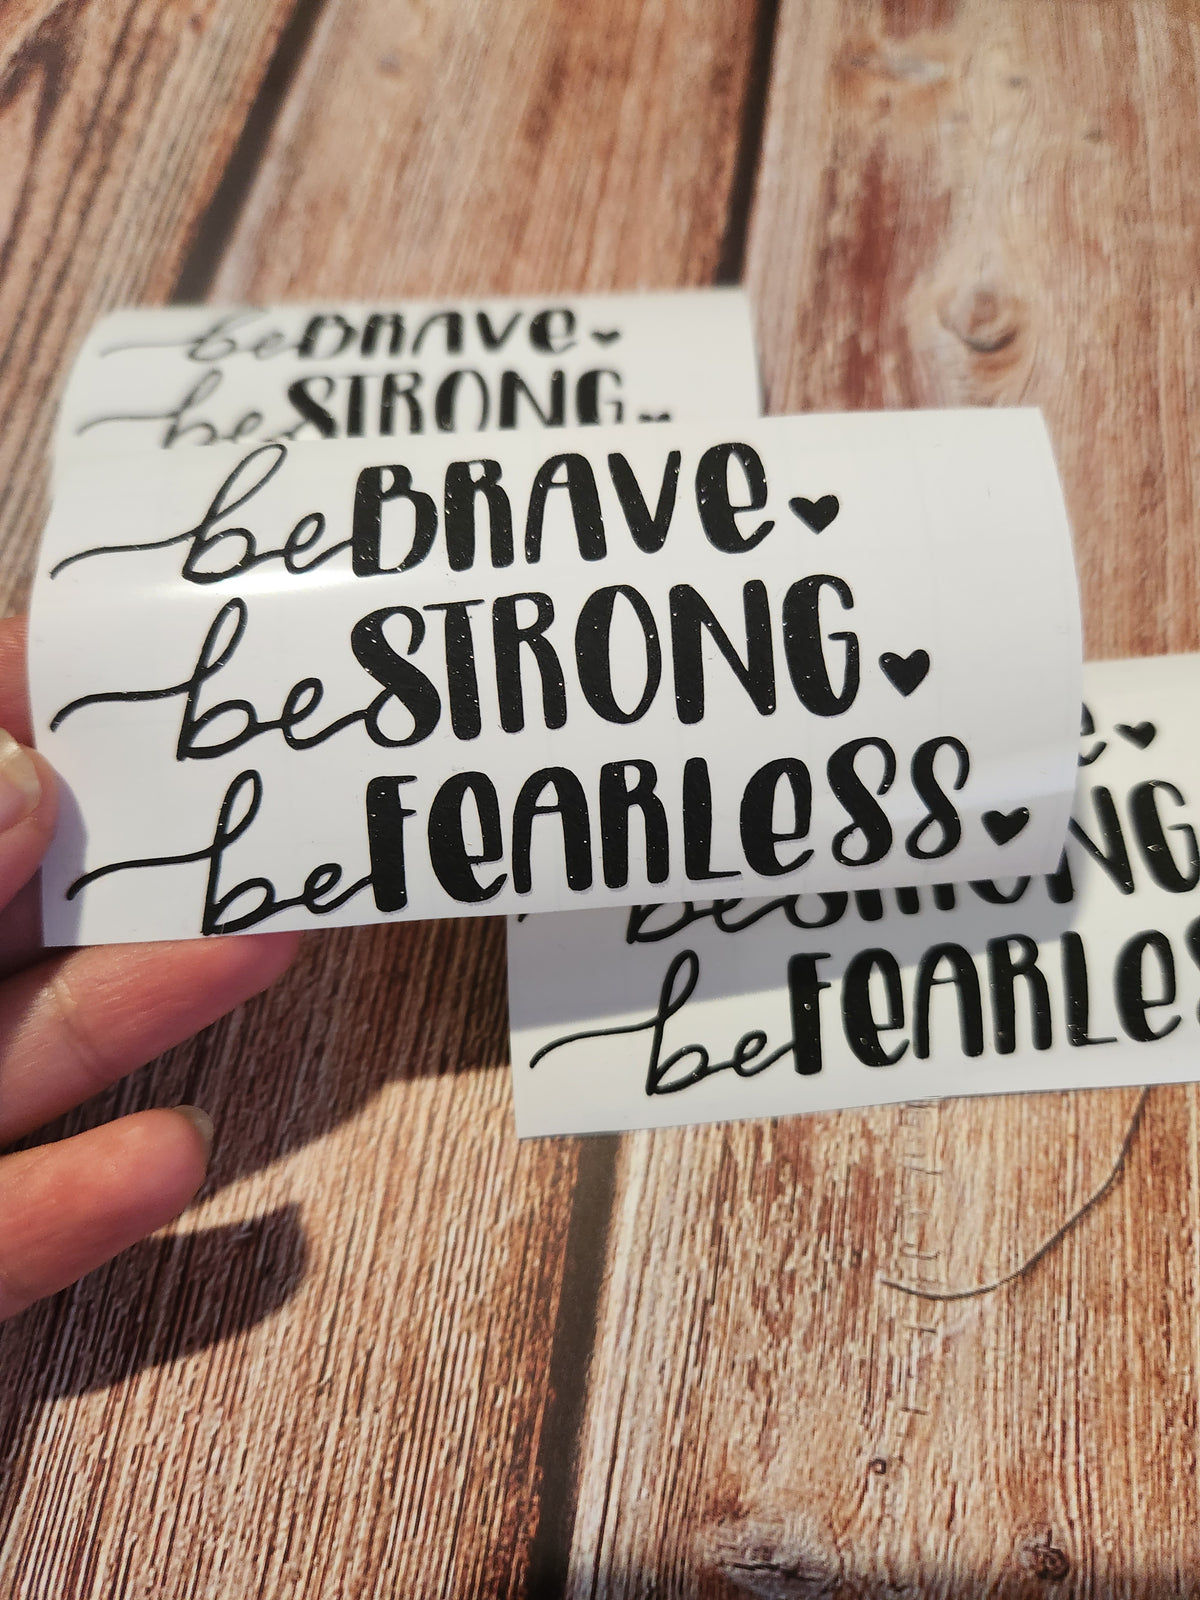 be BRAVe
be STRONG
be BRAVe
be STRONG
be FeARLeSS
e
NG
be STRONG
be FeARLeS